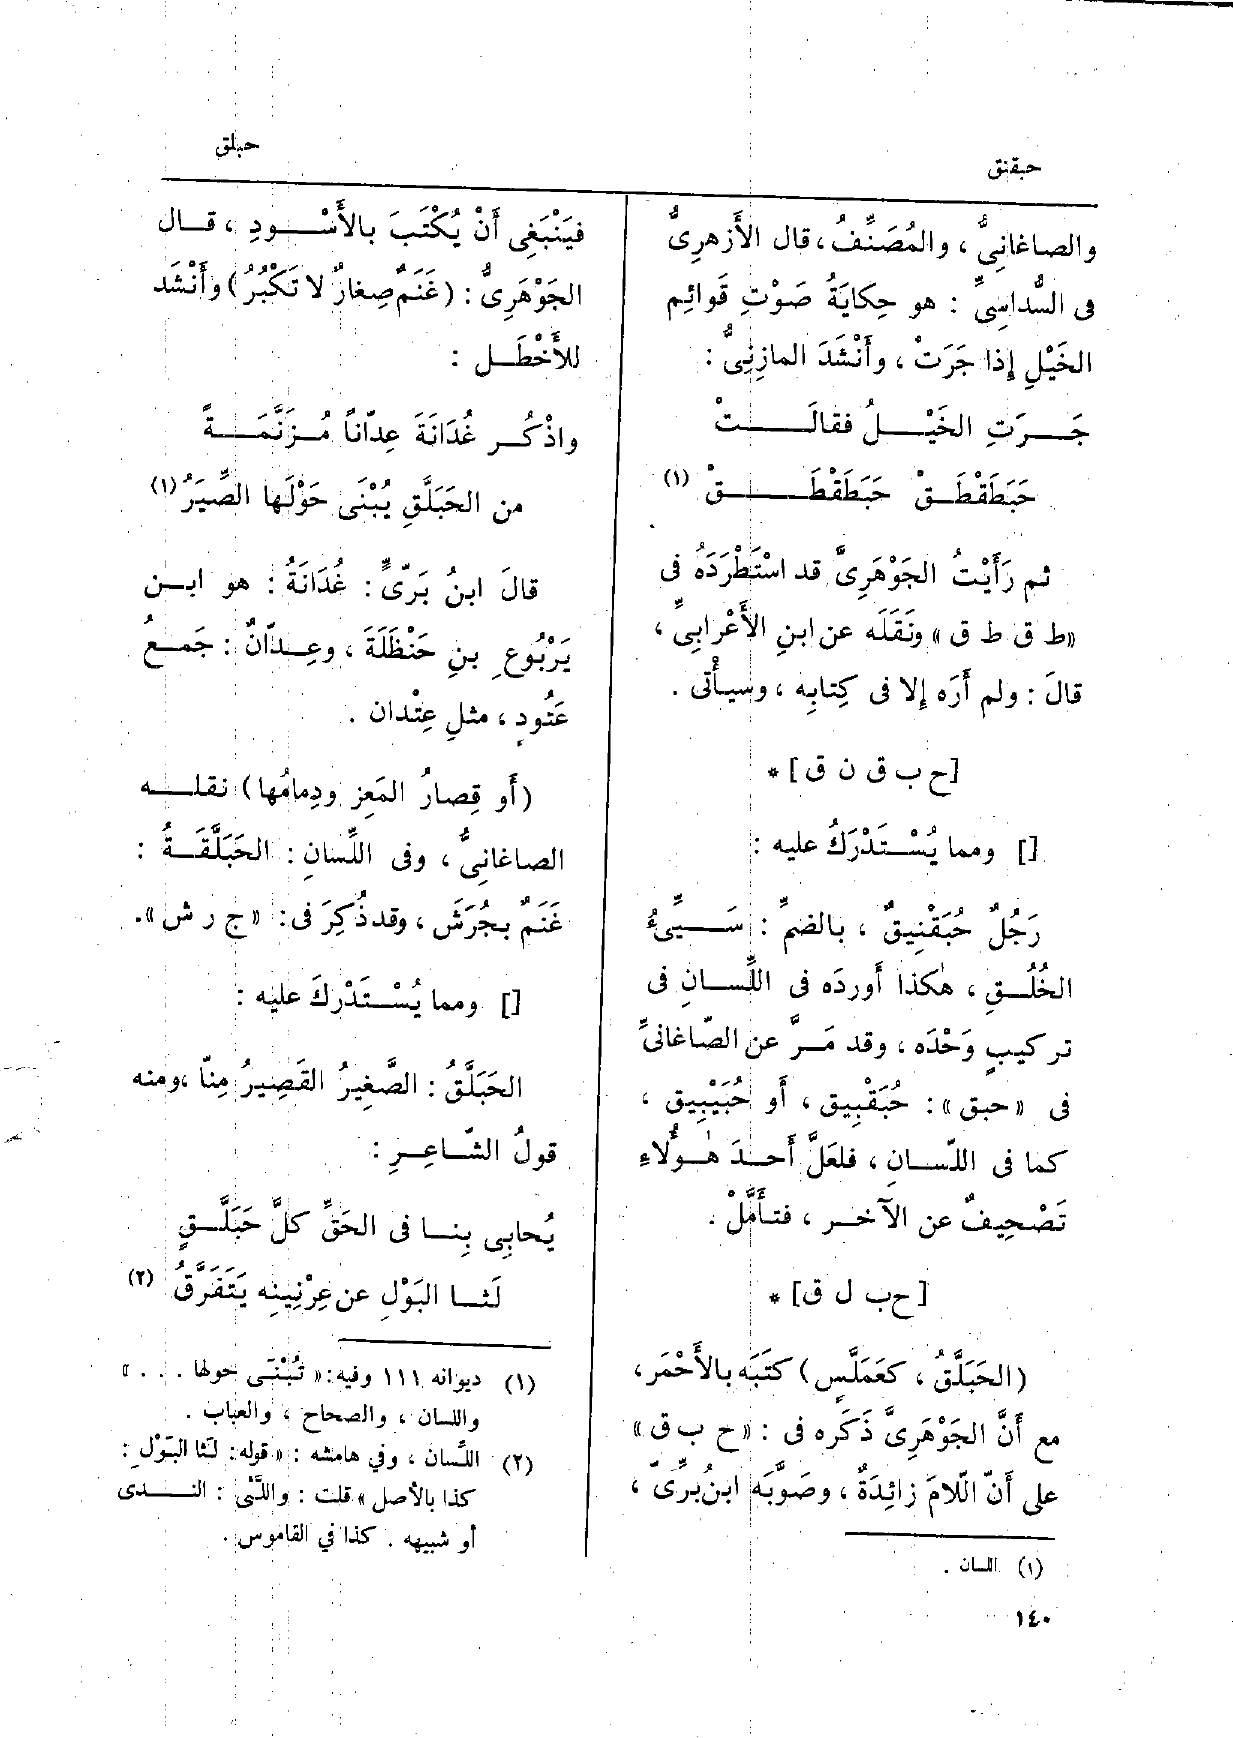 حبقنق
حبلق
والصاغانِىُّ ، والمُصَنِّفُ، قال الأَزهرِىُّ
فى السُّداسِىِّ : هو حِكايَةُ صَوْتِ قَوائِم
الخَيْلِ إِذا جَرَتْ ، وأَنْشَدَ المازِنِىُّ :
جَـرَتِ الخَيْـلُ فقالَـتْ
حَبَطَقْطَـقْ حَبَطَقْطَـقْ (١)
ثم رَأَيْتُ الجَوْهَرِىَّ قد اسْتَطْرَدَهُ فى
«ط ق ط ق» ونَقَلَه عن ابنِ الأَعْرابِىِّ ،
قالَ : ولم أَرَه إلا فى كِتابِه ، وسيأْتى .
[ح ب ق ن ق] *
[] ومما يُسْـتَدْرَكُ عليه :
رَجُلٌ حُبَقْنِيقٌ ، بالضمِّ : سَـيِّىءُ
الخُلُـقِ ، هٰكذا أوردَه فى اللِّسـانِ فى
تركيبٍ وَحْدَه ، وقد مَـرَّ عن الصّاغانىِّ
فى «حبق» : حُبَقْبِيق ، أو حُبَيْبِيق ،
كما فى اللّسـانِ ، فلعَلَّ أَحـدَ هٰـؤُلاءِ
تَصْحِيفٌ عن الآخـر ، فتـأَمَّلْ .
[ح ب ل ق] *
(الحَبَلَّقُ ، كعَمَلَّسٍ) كَتَبَه بالأَحْمَر ،
مع أَنَّ الجَوْهَرِىَّ ذَكَره فى : «ح ب ق»
على أَنّ اللّامَ زائِدَةٌ ، وصَوَّبَه ابنُ برِّىّ ،
(١) اللسان .
١٤٠
فيَنْبَغِى أَنْ يُكْتَبَ بالأَسْـودِ ، قـال
الجَوْهَرِىُّ : (غَنَمٌ صِغارٌ لا تَكْبُرُ) وأَنْشَد
للأَخْطَـل :
واذْكُـر غُدَانَةَ عِدّاناً مُـزَنَّمَـةً
من الحَبَلَّقِ يُبْنَى حَوْلَها الصِّيَرُ (١)
قالَ ابنُ بَرّىٍّ : غُدَانَةُ : هو ابـن
يَرْبُوعِ بنِ حَنْظَلَةَ ، وعِـدّانٌ : جَمـعُ
عَتُودٍ ، مثلِ عِتْدان .
(أو قِصارُ المَعِز ودِمامُها) نقلـه
الصاغانىُّ ، وفى اللِّسانِ : الحَبَلَّقَـةُ :
غَنَمٌ بجُرَشَ ، وقد ذُكِرَ فى: «ج ر ش».
[] ومما يُسْـتَدْرَكَ عليه :
الحَبَلَّقُ : الصَّغِيرُ القَصِيرُ مِنّا ،ومنه
قولُ الشّـاعِـرِ :
يُحابِى بِنـا فى الحَقِّ كلَّ حَبَلَّـقٍ
لَثـا البَوْلِ عن عِرْنِينِه يَتَفَرَّقُ (٢)
(١) ديوانه ١١١ وفيه:« تُبْنَـى حولها . . . »
واللسان ، والصحاح ، والعباب .
(٢) اللسان ، وفي هامشه : «قوله: لَثا البَوْلِ :
كذا بالأصل» قلت : واللَّثَى : النـدى
أو شبيهه . كذا في القاموس .